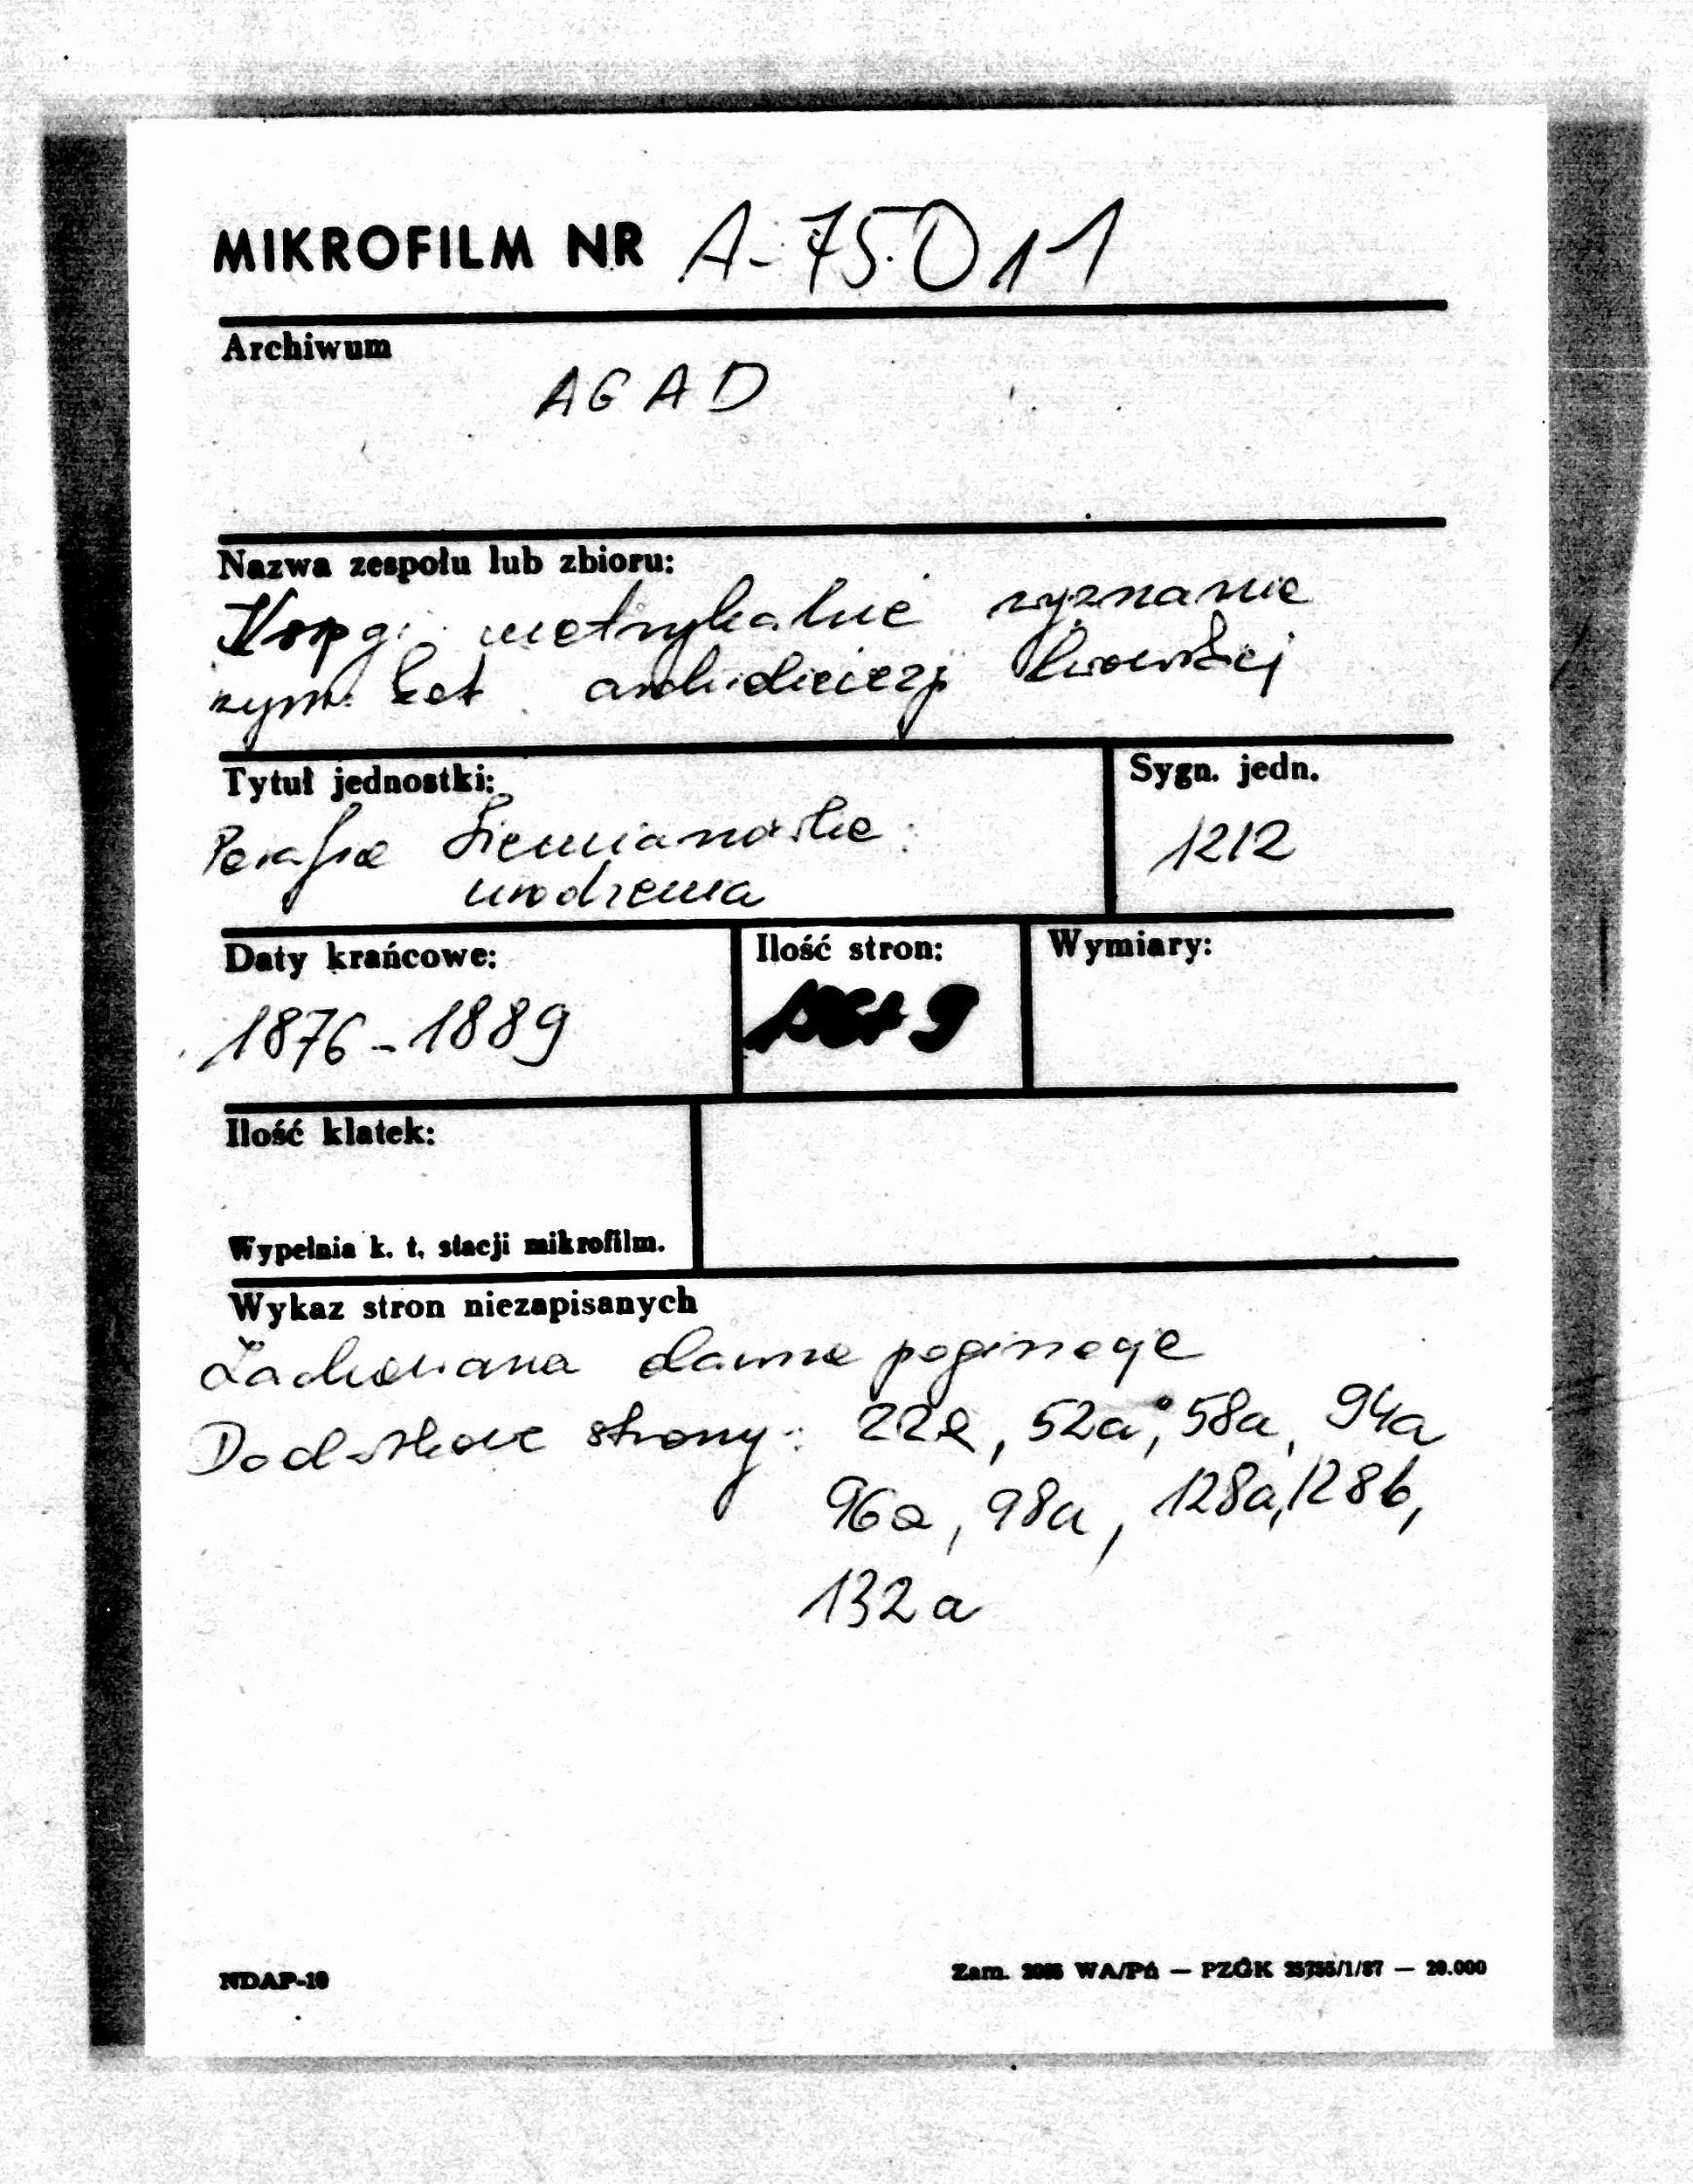 MIKROFILM NR A-75011
Archiwum
AGAD
Nazwa zespołu lub zbioru:
Księgi metrykalne wyznanie
rzym. kat. archidiecezji lwowskiej
Tytuł jednostki:
Sygn. jedn.
Parafia Siemianówka:
1212
urodzenia
Daty krańcowe:
Ilość stron:
Wymiary:
1876-1889
Ilość klatek:
Wypełnia k. t. stacji mikrofilm.
Wykaz stron niezapisanych
Zachowana dawna paginacja
Dodatkowe strony: 22a, 52a, 58a, 94a
96a, 98a, 128a, 128b,
132a
NDAP-10
Zam. WA/Pń — PZGK /1/87 — 20.000